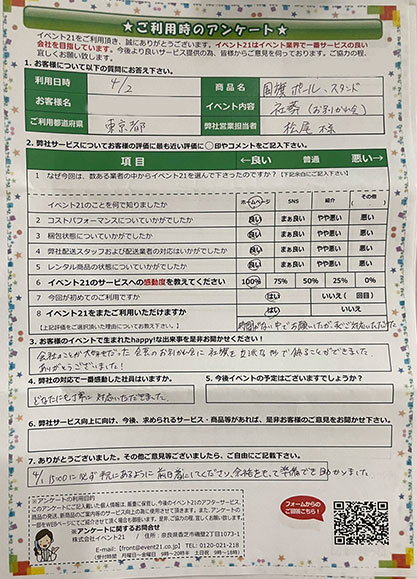 ★ご利用時のアンケート★
イベント21をご利用頂き、誠にありがとうございます。イベント21はイベント業界で一番サービスの良い
会社を目指しています。今後より良いサービス提供の為、皆様からご意見を伺っております。ご協力の程、
宜しくお願い致します。
1. お客様について以下の質問にお答え下さい。
ご利用日時 4/2 商品名 国旗ポール・スタンド
お客様名 イベント内容 社葬(お別れ会)
ご利用都道府県 東京都 弊社営業担当者 松尾 様
2. 弊社サービスについてお客様の評価に最も近い評価に〇印やコメントをご記入下さい。
項目 ←良い 普通 悪い→
1 なぜ今回は、数ある業者の中からイベント21を選んで下さったのですか?【下記余白にご記入下さい】
イベント21のことを何で知りましたか ホームページ SNS 紹介 (その他)
2 コストパフォーマンスについていかがでしたか 良い まぁ良い やや悪い 悪い
3 梱包状態についていかがでしたか 良い まぁ良い やや悪い 悪い
4 弊社配送スタッフおよび配送業者の対応はいかがでしたか 良い まぁ良い やや悪い 悪い
5 レンタル商品の状態についていかがでしたか 良い まぁ良い やや悪い 悪い
6 イベント21のサービスへの感動度を教えてください 100% 75% 50% 25% 0%
7 今回が初めてのご利用ですか はい いいえ( 回目)
8 イベント21をまたご利用いただけますか はい いいえ
【上記評価をご選択頂いた理由についてお教え下さい】 時間がない中でお願いしたが、対応いただけた
3. お客様のイベントで生まれたhappy!な出来事を是非お聞かせください!
会社の
会長のお別れ会に社旗を立派な形で飾ることができました
ありがとうございました!
4. 弊社の対応で一番感動した社員はいますか。 5. 今後イベントの予定はございますでしょうか?
どなたにも丁寧に対応いただきました。
6. 弊社サービス向上に向け、今後、求められるサービス・商品等があれば、是非お客様のご意見をお聞かせ下さい。
7. ありがとうございました。その他ご意見等ございましたら、ご自由にご記載下さい。
4/1 15:00に必ず手元にあるように前日着にしてくださり、余裕をもって準備でき助かりました。
※アンケートの利用目的
このアンケートにご記入戴いた個人情報は、厳重に保管し、今後のイベント21のアフターサービス、
商品の発送、新商品のご案内等のサービス向上の為に使用させて頂きます。また、アンケートの
一部をWEBページにてご紹介させて頂く場合も御座います。是非、ご協力の程、宜しくお願い致します。
・アンケートに関するお問合せ
株式会社イベント21 / 住所:奈良県香芝市磯壁2丁目1073-1
E-mail: [front@event21.co.jp] TEL: 0120-021-218
(受付時間 月曜日~金曜日 9時~20時半 土日祝 9時~18時)
フォームからの
ご回答はこちら!